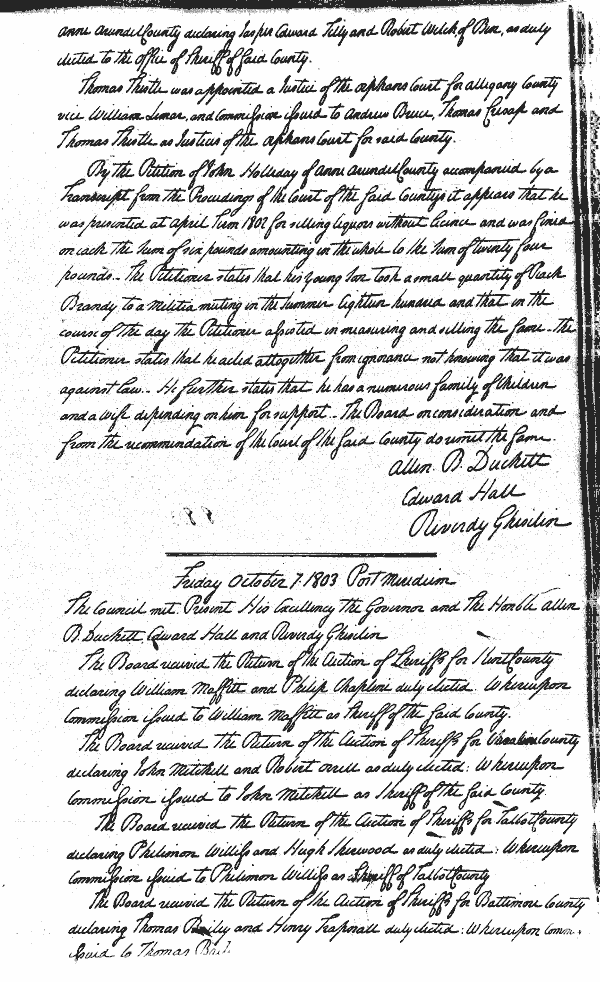 Anne Arundel County declaring Jasper Edward Tilly and Robert Welch of Ben, as duly
elected to the office of Sheriff of said County.
Thomas Thistle was appointed a Justice of the orphans Court for allegany County
vice William Lamar, and Commission issued to Andrew Bruce, Thomas Cresap and
Thomas Thistle as Justices of the orphans Court for said County.
By the Petition of John Holladay of Anne Arundel County accompanied by a
Transcript from the Proceedings of the Court of the said County it appears that he
was presented at April Term 1802 for selling liquors without licence and was fined
on each the sum of six pounds amounting in the whole to the sum of twenty four
pounds.. The Petitioner states that his young son took a small quantity of Peach
Brandy to a Militia muting in the summer Eighteen hundred and that in the
course of the day the Petitioner assisted in measuring and selling the same - the
Petitioner states that he acted altogether from ignorance not knowing that it was
against law.. He further states that he has a numerous family of Children
and a wife depending on him for support.. The Board on consideration and
from the recommendation of the Court of the said County do remit the same.
Allen. B. Duckett
Edward Hall
Reverdy Ghiselin
Friday October 7. 1803 Post Meridiem
The Council met. Present His Excellency the Governor and The Honble Allen
B. Duckett, Edward Hall and Reverdy Ghiselin
The Board received the Return of the Election of Sheriffs for Kent County
declaring William Maffitt and Philip Chapline duly elected. Whereupon
Commission issued to William Maffitt as Sheriff of the said County.
The Board received the Return of the Election of Sheriffs for County
declaring John Mitchell and Robert Orrell as duly elected: Whereupon
Commission issued to John Mitchell as Sheriff of the said County
The Board received the Return of the Election of Sheriffs for Talbot County
declaring Philimon Williss and Hugh Sherwood as duly elected: Whereupon
Commission issued to Philimon Williss as Sheriff of Talbot County
The Board received the Return of the Election of Sheriffs for Baltimore County
declaring Thomas Bailey and Henry duly elected: Whereupon Comm.
issued to Thomas